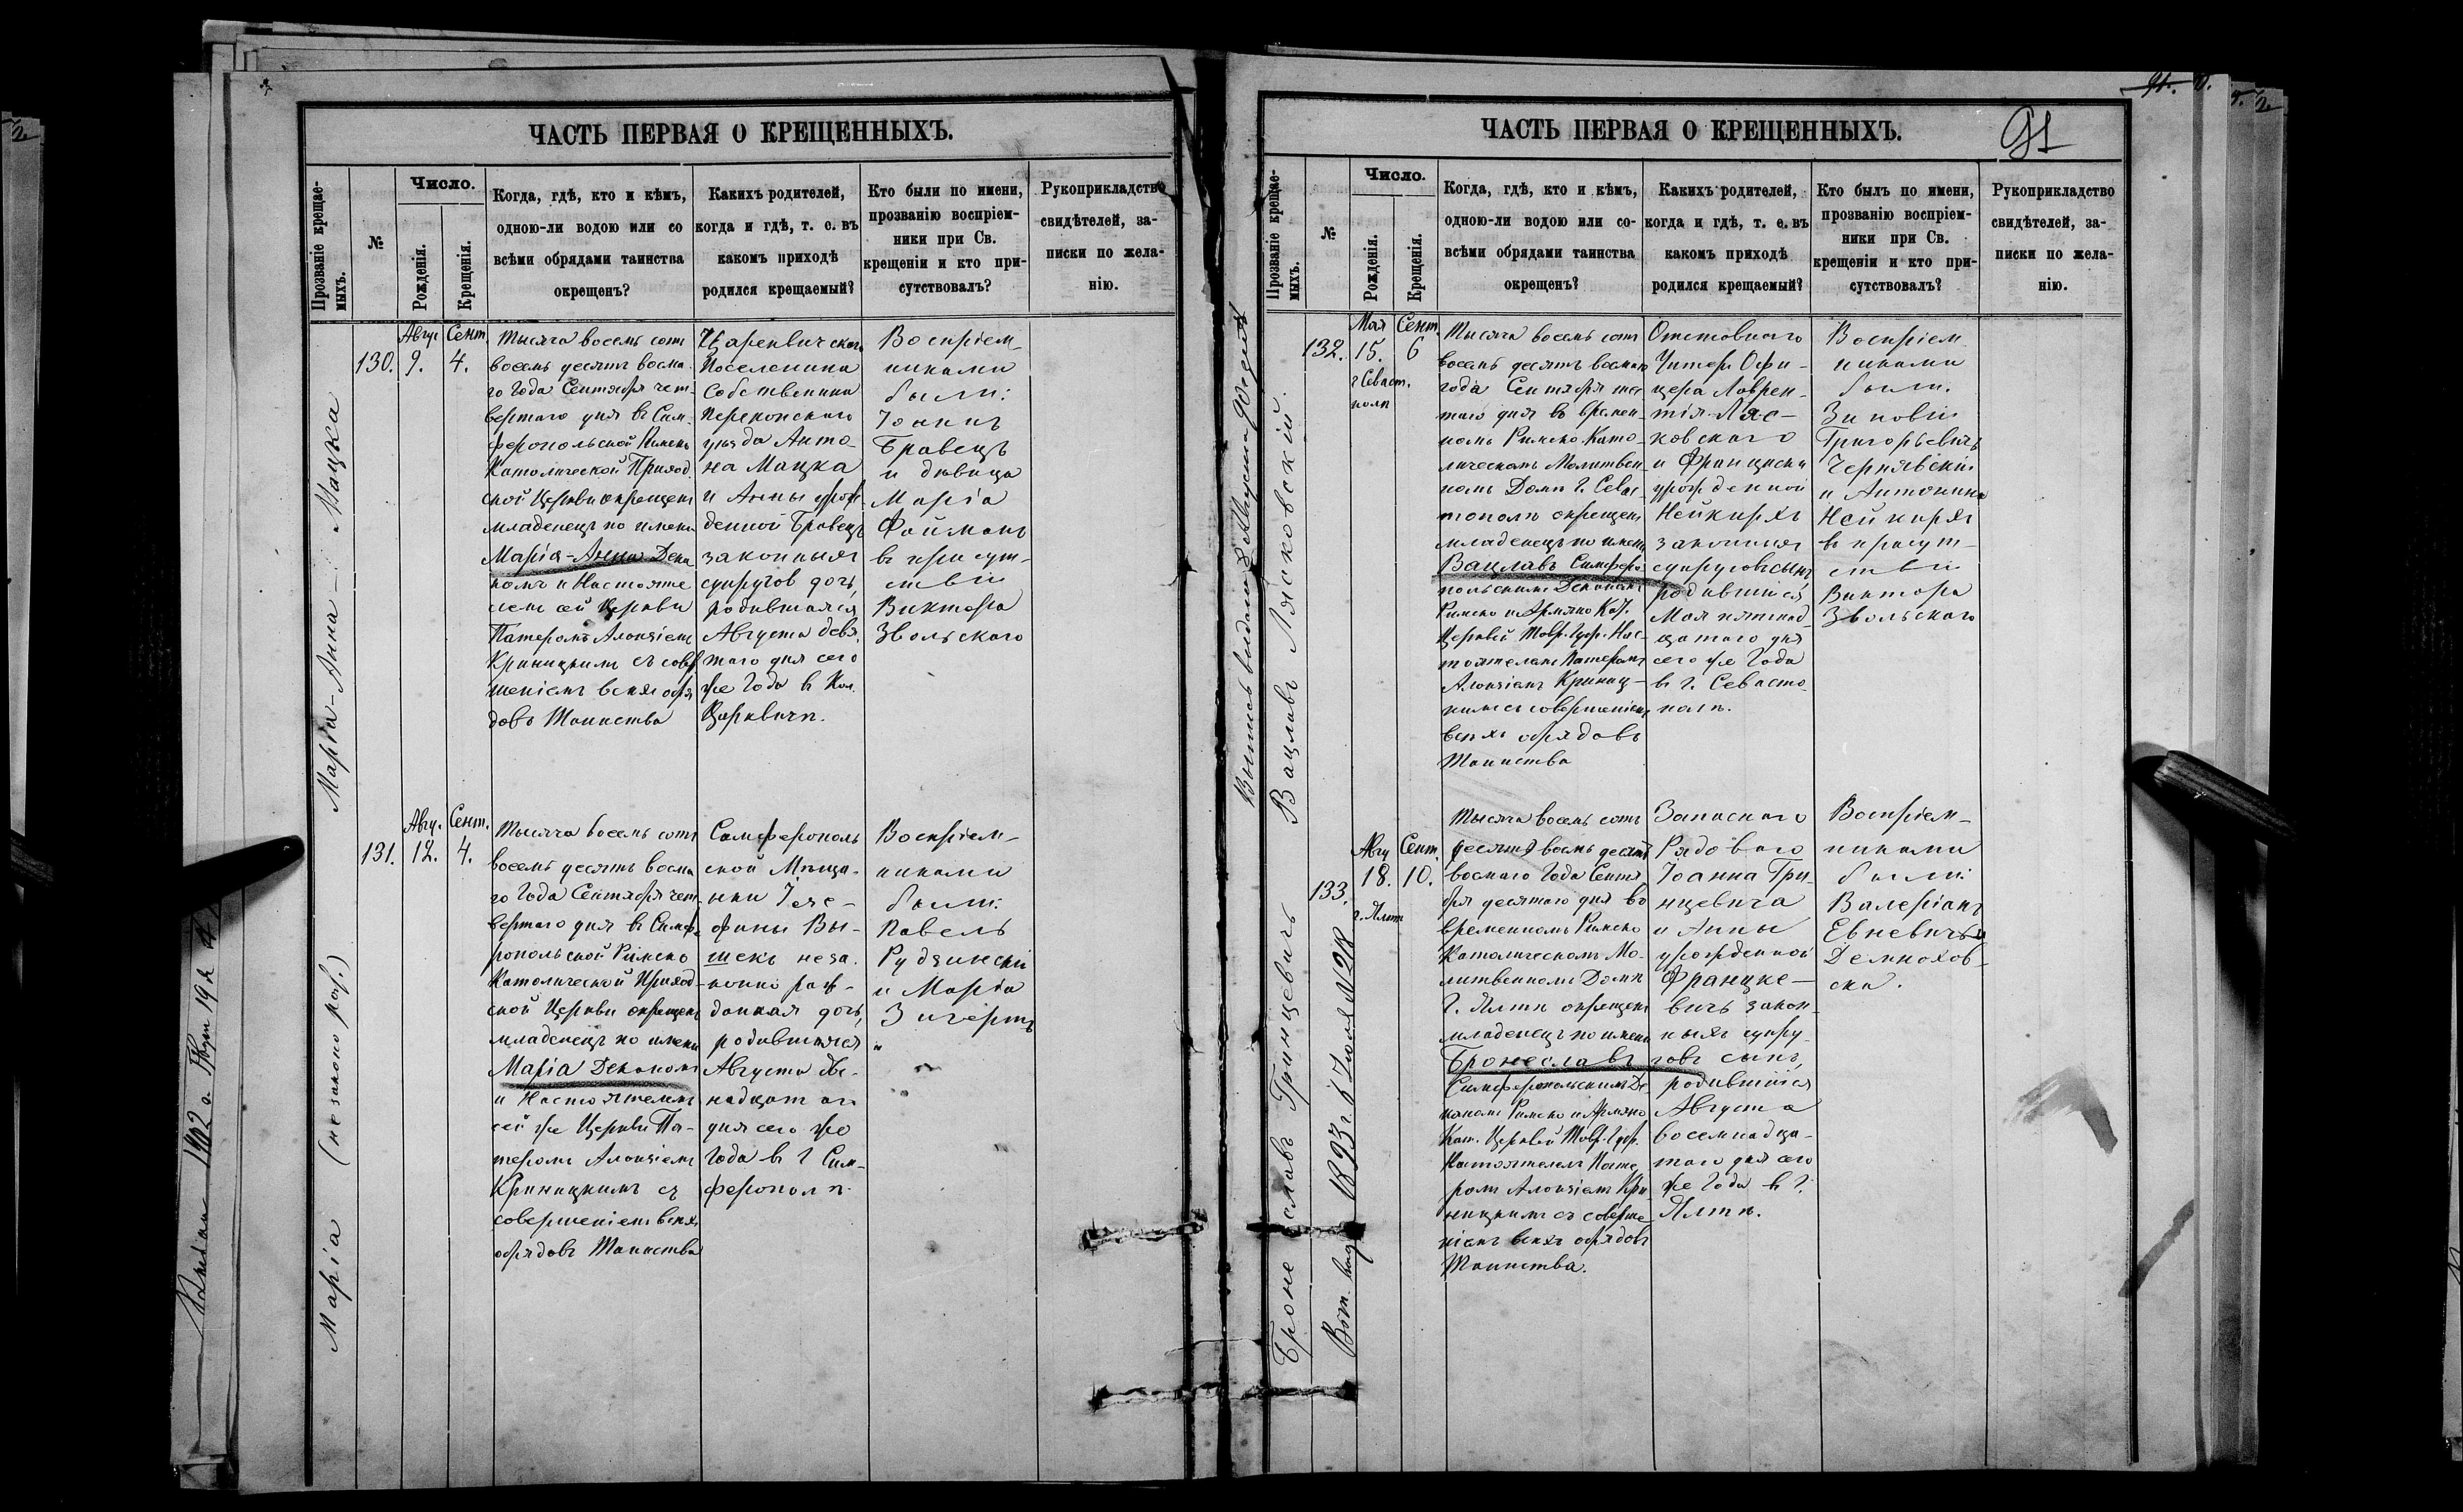 ЧАСТЬ ПЕРВАЯ О КРЕЩЕННЫХЪ.
Прозваніе крещае-
мыхъ.
№
Число.
Рожденія.
Крещенія.
Когда, гдѣ, кто и кѣмъ,
одною-ли водою или со
всѣми обрядами таинства
окрещенъ?
Какихъ родителей,
когда и гдѣ, т. е. въ
какомъ приходѣ
родился крещаемый?
Кто были по имени,
прозванію воспріем-
ники при Св.
крещеніи и кто при-
сутствовалъ?
Рукоприкладство
свидѣтелей, за-
писки по жела-
нію.
Марія-Анна — Мацка
130.
Авгус
9.
Сент.
4.
Тысяча восемь сотъ
восемь десятъ восма-
го Года Сентября чет-
вертаго дня въ Сим-
феропольской Римско
Католической Приход
ской Церкви окрещенъ
младенецъ по имени
Марія-Анна Дека
номъ и Настояте
лемъ сей Церкви
Патеромъ Алоизіемъ
Криницкимъ съ совер
шеніемъ всѣхъ обря
довъ Таинства
Царквичскаго
Поселенина
Собственника
Перекопскаго
уѣзда Анто-
на Мацка
и Анны урож
денной Бравецъ
законныхъ
супруговъ дочь,
родившаяся
Августа девя
таго дня сего
же Года въ Кол.
Царквичи.
Воспріем-
никами
были:
Іоаннъ
Бравецъ
и дѣвица
Марія
Фойманъ
въ присут-
ствіи
Виктора
Звольскаго
Марія (незаконо рож.)
131.
Авгу.
12.
Сент.
4.
Тысяча восемь сотъ
восемь десятъ восма
го Года Сентября чет-
вертаго дня въ Симфе
ропольской Римско
Католической Приход-
ской Церкви окрещенъ
младенецъ по имени
Марія Деканомъ
и Настоятелемъ
сей же Церкви Па-
теромъ Алоизіемъ
Криницкимъ съ
совершеніемъ всѣхъ
обрядовъ Таинства
Симферополь
ской Мѣща-
нки Іозе-
фины Вы-
шекъ неза-
конно рож-
данная дочь,
родившаяся
Августа две-
надцатаго
дня сего же
Года въ г. Сим-
ферополѣ.
Воспріем-
никами
были:
Павелъ
Рудзинскій
и Марія
Зигертъ
1902 г. 19 я
ЧАСТЬ ПЕРВАЯ О КРЕЩЕННЫХЪ.
91
Прозваніе крещае-
мыхъ.
№
Число.
Рожденія.
Крещенія.
Когда, гдѣ, кто и кѣмъ,
одною-ли водою или со-
всѣми обрядами таинства
окрещенъ?
Какихъ родителей,
когда и гдѣ, т. е. въ
какомъ приходѣ
родился крещаемый?
Кто былъ по имени,
прозванію воспріем-
ники при Св.
крещеніи и кто при-
сутствовалъ?
Рукоприкладство
свидѣтелей, за-
писки по жела-
нію.
Вацлавъ Лясковскій.
132.
Мая
15.
г Севаст.
полѣ
Сент.
6
Тысяча восемь сотъ
восемь десятъ восмаго
года Сентября шес
таго дня въ времен-
номъ Римско Като-
лическомъ Молитвен-
номъ Домѣ г. Севас-
тополѣ окрещенъ
младенецъ по имени
Вацлавъ Симферо-
польскимъ Деканомъ
Римско и Армяно Кат.
Церквей Тавр. Губ. Нас-
тоятелемъ Патеромъ
Алоизіемъ Криниц-
кимъ съ совершеніемъ
всѣхъ обрядовъ
Таинства
Отставнаго
Унтеръ Офи-
цера Лаврен-
тія Ляс-
ковскаго
и Франциски
урожденной
Нейкирхъ
законныхъ
супруговъ сынъ,
родившійся
Мая пятнад-
цатаго дня
сего же Года
въ г. Севасто-
полѣ.
Воспріем
никами
были:
Зиновій
Григорьевичъ
Чернявскій
и Антонина
Нейкирхъ
въ присут-
ствіи
Виктора
Звольскаго
Бронеславъ Гринцевичъ
1893 г. 6 Іюля №218
133.
Авгу
18.
г. Ялт
Сент.
10.
Тысяча восемь сотъ
десятъ восемь десятъ
восмаго Года Сентя
бря десятаго дня во
временномъ Римско
Католическомъ Мо-
литвенномъ Домѣ
Г. Ялтѣ окрещенъ
младенецъ по имени
Бронеславъ
Симферопольскимъ Де
каномъ Римско и Армяно
Кат. Церквей Тавр. Губ.
Настоятелемъ Пате
ромъ Алоизіемъ Кри
ницкимъ съ соверше-
ніемъ всѣхъ обрядовъ
Таинства.
Запаснаго
Рядоваго
Іоанна Гри-
нцевича
и Анны
урожденной
Францке-
вичъ закон-
ныхъ супру-
говъ сынъ,
родившійся
Августа
восемнадца-
таго дня сего
же Года въ г.
Ялтѣ.
Воспріем-
никами
были:
Валеріанъ
Евневичъ и
Демнохов-
ска.